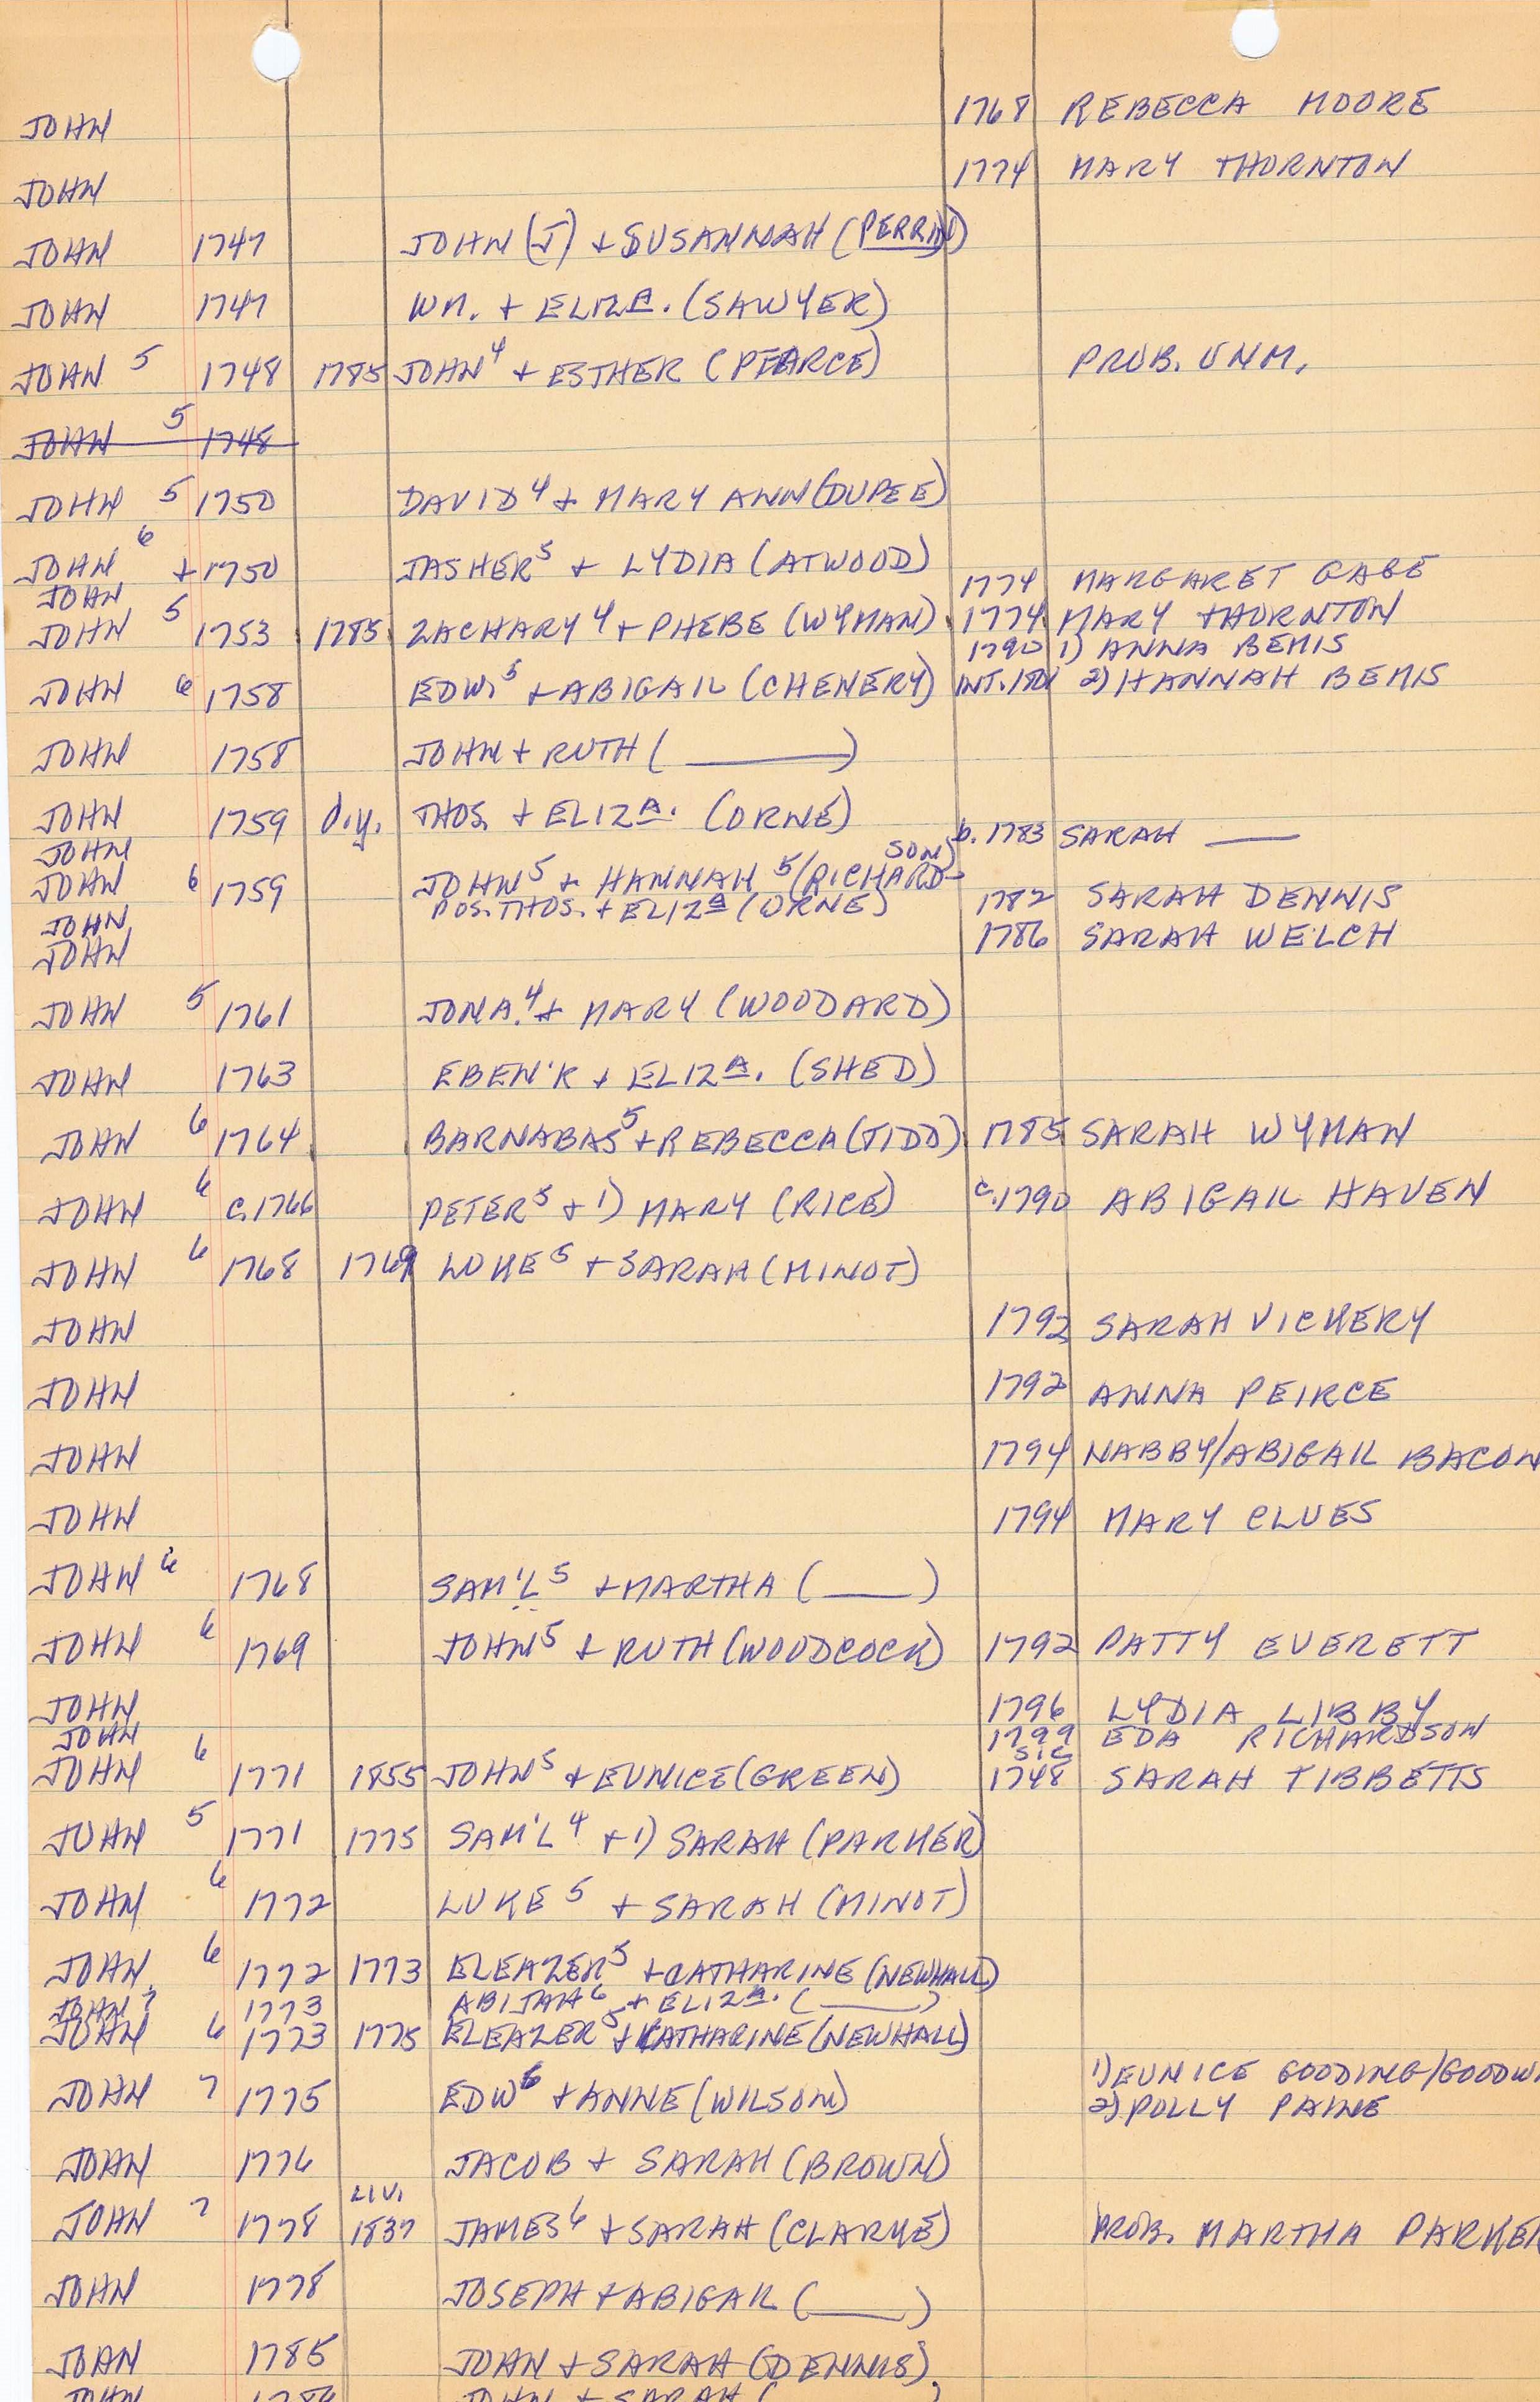 JOHN 1768 REBECCA MOORE
JOHN 1774 MARY THORNTON
JOHN 1747 JOHN (J) + SUSANNAH (PERRIN)
JOHN 1747 WM. + ELIZA. (SAWYER)
JOHN 5 1748 1785 JOHN 4 + ESTHER (PEARCE) PROB. UNM.
JOHN 5 1748
JOHN 5 1750 DAVID 4 + MARY ANN (DUPEE)
JOHN 6 + 1750 JASHER 5 + LYDIA (ATWOOD) 1774 MARGARET GAGE
JOHN 1774 MARY THORNTON
JOHN 5 1753 1785 ZACHARY 4 + PHEBE (WYMAN)
1790 1) ANNA BEMIS
JOHN 6 1758 EDW. 5 + ABIGAIL (CHENERY) INT. 2) HANNAH BEMIS
JOHN 1758 JOHN + RUTH ( ______ )
JOHN 1759 d.y. THOS. + ELIZA. (ORNE)
JOHN b. 1783 SARAH ___
JOHN 6 1759 JOHN 5 + HANNAH 5 (RICHARDSON)
JOHN POS. THOS. + ELIZA (ORNE) 1782 SARAH DENNIS
JOHN 1786 SARAH WELCH
JOHN 5 1761 JONA. 4 + MARY (WOODARD)
JOHN 1763 EBEN'R + ELIZA. (SHED)
JOHN 6 1764 BARNABAS 5 + REBECCA (TIDD) 1785 SARAH WYMAN
JOHN 6 C. 1766 PETER 5 + 1) MARY (RICE) C. 1790 ABIGAIL HAVEN
JOHN 6 1768 1769 LUKE 5 + SARAH (MINOT)
JOHN 1792 SARAH VICKERY
JOHN 1792 ANNA PEIRCE
JOHN 1794 NABBY/ABIGAIL BACON
JOHN 1794 MARY CLUES
JOHN 6 1768 SAM'L 5 + MARTHA ( ____ )
JOHN 6 1769 JOHN 5 + RUTH (WOODCOCK) 1792 PATTY EVERETT
JOHN 1796 LYDIA LIBBY
JOHN 1799 EDA RICHARDSON
SIC
JOHN 6 1771 1855 JOHN 5 + EUNICE (GREEN) 1748 SARAH TIBBETTS
JOHN 5 1771 1775 SAM'L 4 + 1) SARAH (PARKER)
JOHN 6 1772 LUKE 5 + SARAH (MINOT)
JOHN 6 1772 1773 ELEAZER 5 + CATHARINE (NEWHALL)
JOHN 7 1773 ABIJAH 6 + ELIZA. ( _____ )
JOHN 6 1773 1775 ELEAZER 5 + KATHARINE (NEWHALL)
1) EUNICE GOODING/GOODWI
JOHN 7 1775 EDW 6 + ANNE (WILSON) 2) POLLY PAINE
JOHN 1776 JACOB + SARAH (BROWN)
LIV.
JOHN 7 1778 1837 JAMES 6 + SARAH (CLARKE) PROB. MARTHA PARKER
JOHN 1778 JOSEPH + ABIGAIL ( ____ )
JOHN 1785 JOHN + SARAH (DENNIS)
JOHN 1786 JOHN + SARAH (